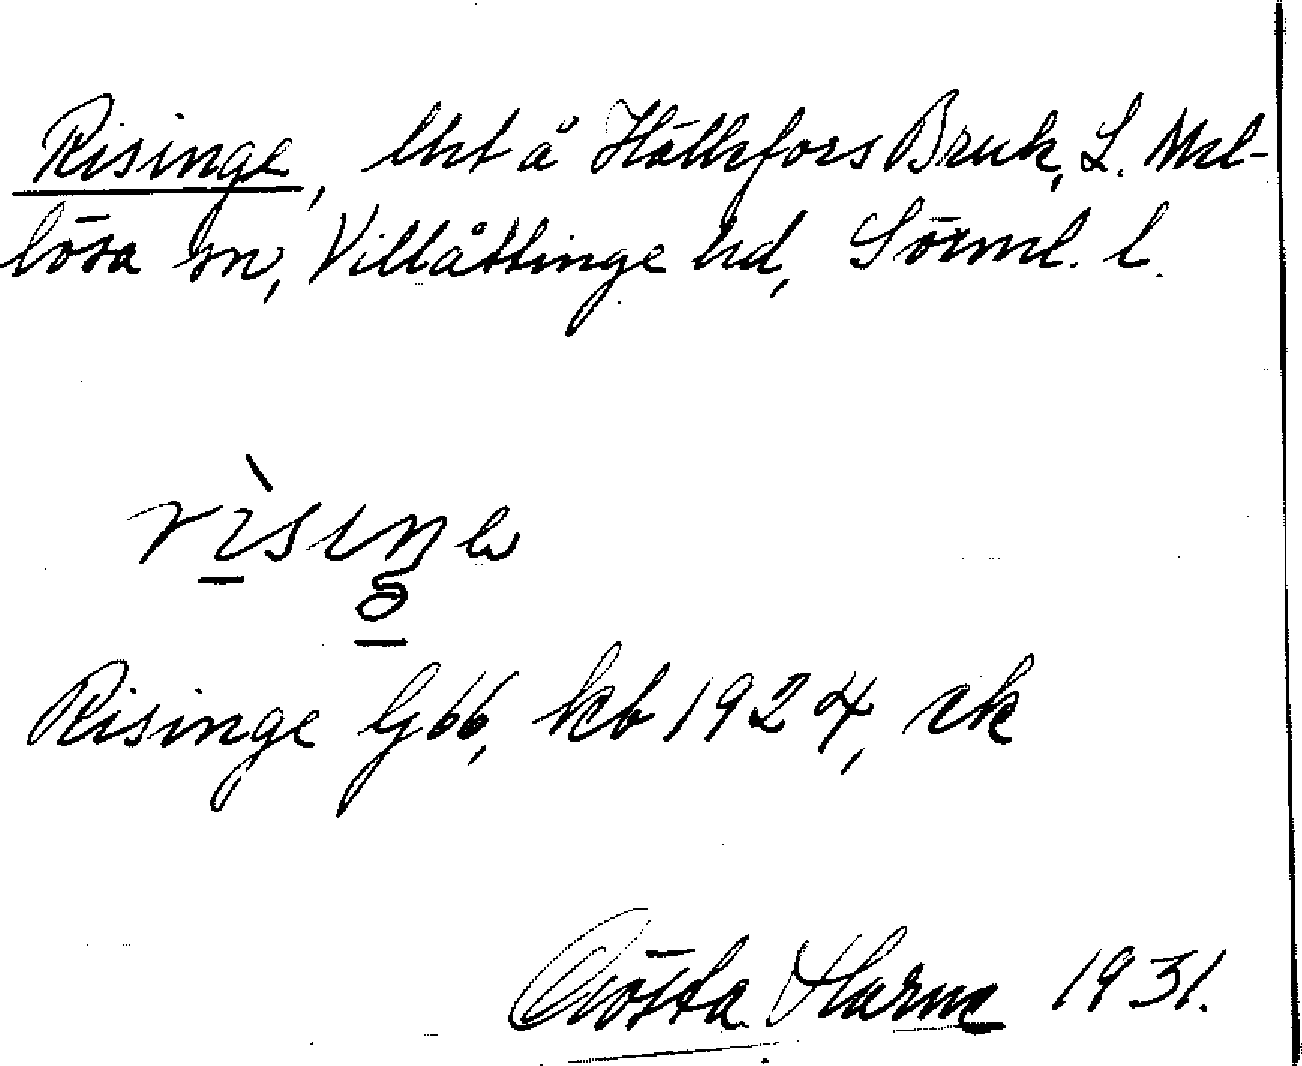 Risinge, lht å Hälleforss Bruk, L. Mel-
lösa sn, Villåttinge hd, Sörml. l.
Risinge Gg 66, kb 1924, rk
Gösta Harne 1931.